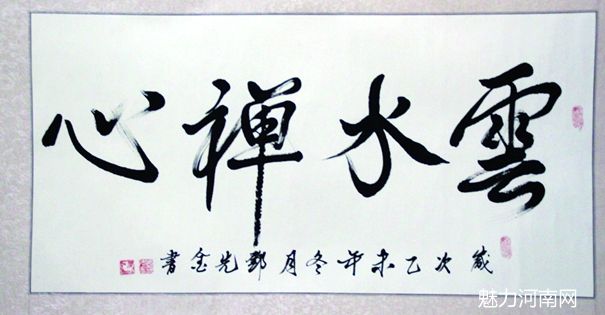 雲水禅心
歲次乙未年冬月鄧先金書
魅力河南网